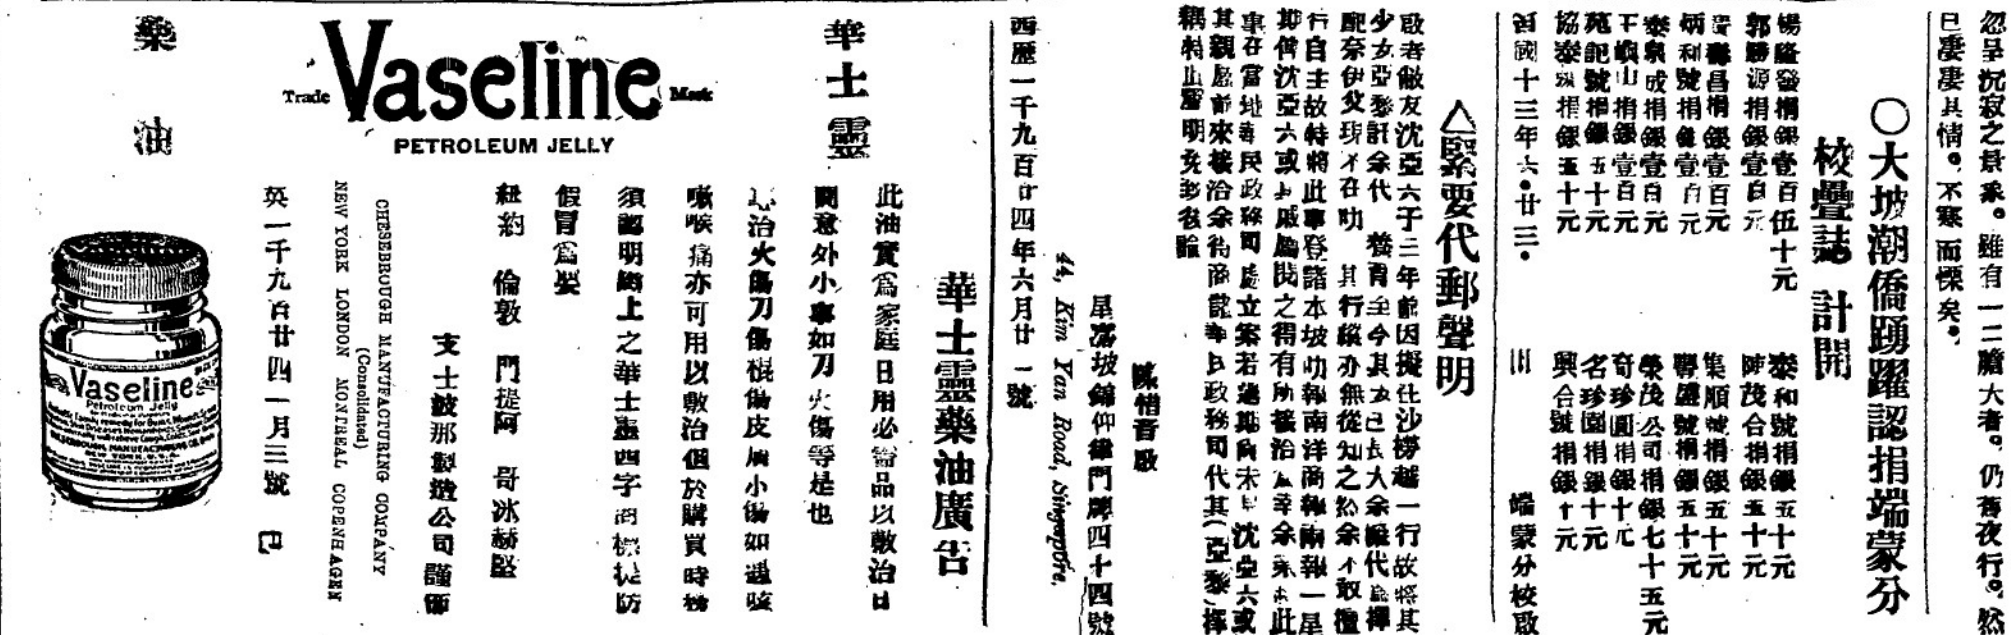 忽呈沉寂之景象。雖有一二膽大者。仍舊夜行。然
已凄凄其情。不寒而慄矣。
〇大坡潮僑踴躍認捐端蒙分
校壘誌 計開
楊隆發捐銀壹百伍十元
泰和號捐銀五十元
郭勝源捐銀壹百元
陳茂合捐銀五十元
昌捐銀壹百元
集順號捐銀五十元
炳和號捐銀壹百元
豐盛號捐銀五十元
泰泉成捐銀壹百元
榮茂公司捐銀七十五元
山捐銀壹百元
奇珍園捐銀十元
苑記號捐銀五十元
名珍園捐銀十元
協泰號捐銀五十元
興合號捐銀十元
民國十三年六・廿三・
端蒙分校啟
△緊要代郵聲明
啟者敝友沈亞六于三年前因擬往沙撈越一行故將其
少女亞黎託余代 養育至今其女已長大余雖代為擇
配奈伊父現不在叻 其行蹤亦無從知之然余不敢擅
行自主故特將此事登諸本坡叻報南洋商報兩報一星
期俾沈亞六或其戚屬閱之得有所接洽 幸余業 此
事在當地華民政務司處立案若過期尚未 沈亞六或
其親屬前來接洽余將商 華民政務司代其(亞黎)擇
耦特此聲明免 後論
陳惜音啟
星嘉坡錦仰律門牌四十四號
44, Kim Yan Road, Singapore.
西歷一千九百廿四年六月廿一號
華士靈藥油廣告
此油實為家庭日用必需品以敷治日
間意外小事如刀火傷等是也
治火傷刀傷棍傷皮膚小傷如遇咳
嗽喉痛亦可用以敷治個於購買時務
須認明紙上之華士靈四字商標提防
假冒為要
紐約 倫敦 門提阿 哥冰赫堅
支士波那製造公司謹啟
CHESEBROUGH MANUFACTURING COMPANY
(Consolidated)
NEW YORK LONDON MONTREAL COPENHAGEN
英一千九百廿四一月三號
華士靈
Trade Vaseline Mark
PETROLEUM JELLY
藥油
Vaseline
Petroleum Jelly
NEW YORK, U.S.A.